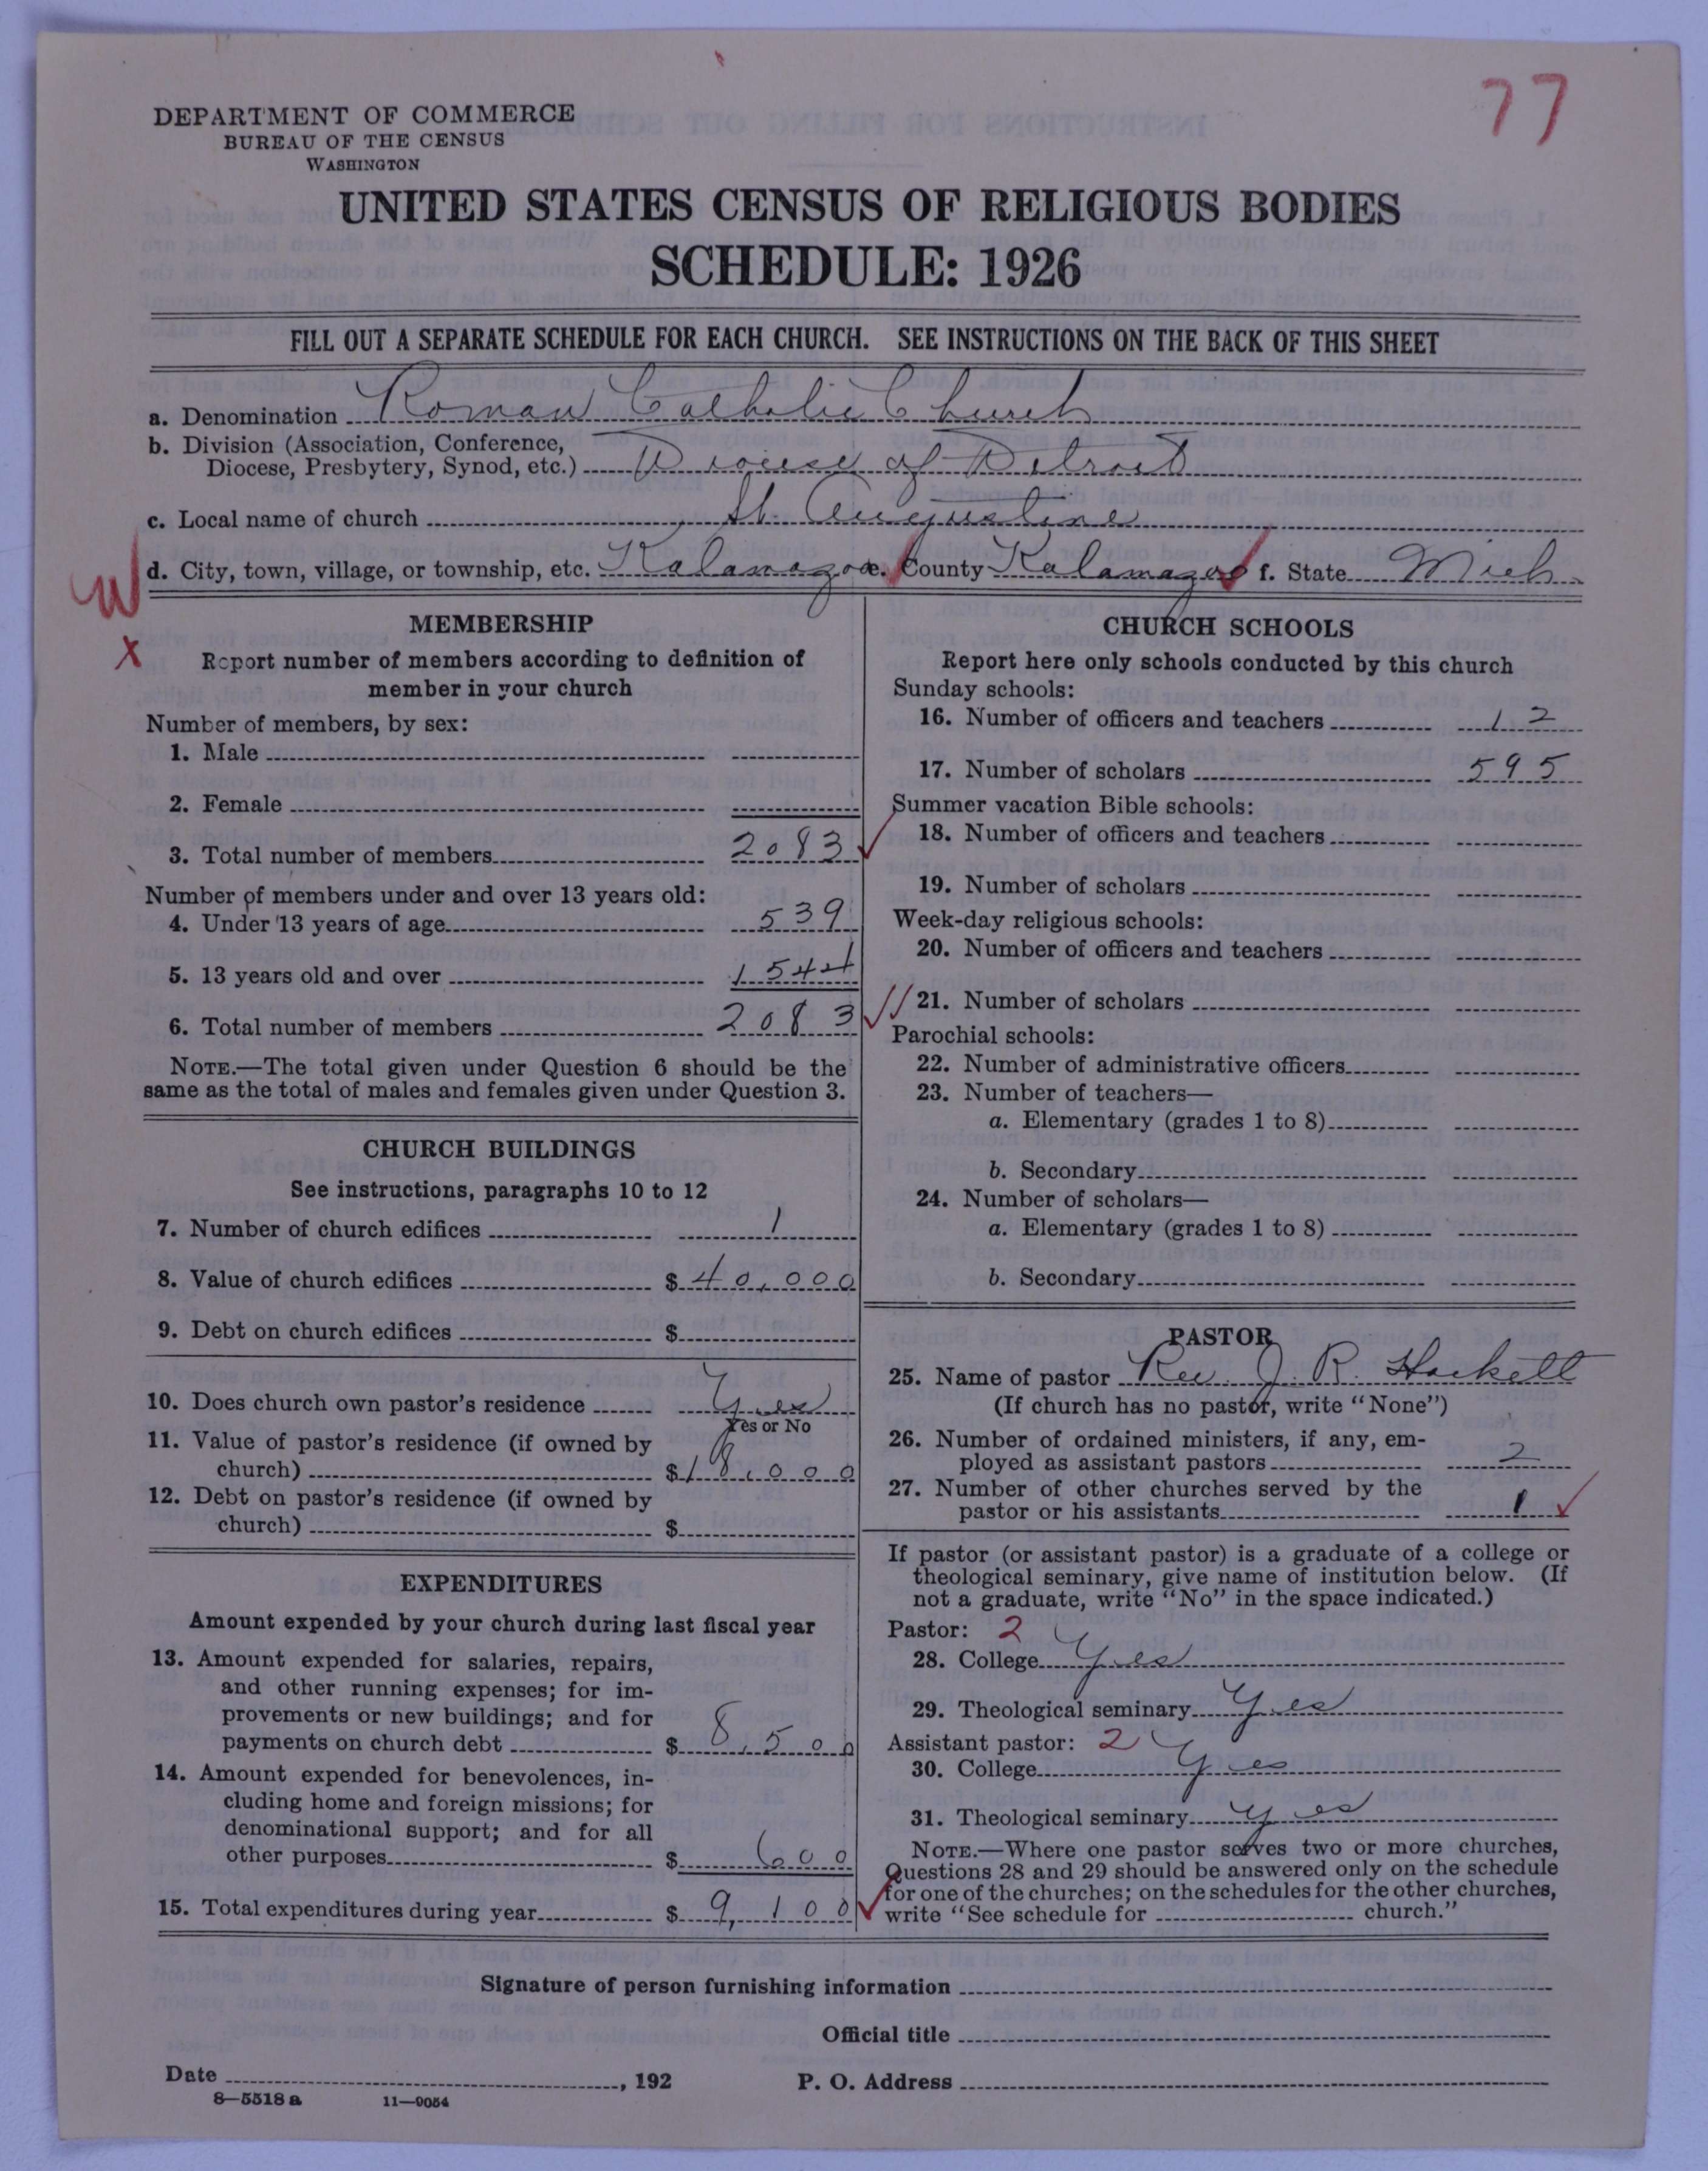 77
DEPARTMENT OF COMMERCE
BUREAU OF THE CENSUS
WASHINGTON
UNITED STATES CENSUS OF RELIGIOUS BODIES
SCHEDULE: 1926
FILL OUT A SEPARATE SCHEDULE FOR EACH CHURCH. SEE INSTRUCTIONS ON THE BACK OF THIS SHEET
a. Denomination Roman Catholic Church
b. Division (Association, Conference,
Diocese, Presbytery, Synod, etc.) Diocese of Detroit
c. Local name of church St. Augustine
W d. City, town, village, or township, etc. Kalamazoo e. County Kalamazoo f. State Mich.
X
MEMBERSHIP
Report number of members according to definition of
member in your church
Number of members, by sex:
1. Male
2. Female
3. Total number of members 2083
Number of members under and over 13 years old:
4. Under 13 years of age 539
5. 13 years old and over 1544
6. Total number of members 2083
NOTE.—The total given under Question 6 should be the
same as the total of males and females given under Question 3.
CHURCH BUILDINGS
See instructions, paragraphs 10 to 12
7. Number of church edifices 1
8. Value of church edifices $ 40,000
9. Debt on church edifices $
10. Does church own pastor's residence Yes
Yes or No
11. Value of pastor's residence (if owned by
church) $ 18,000
12. Debt on pastor's residence (if owned by
church) $
EXPENDITURES
Amount expended by your church during last fiscal year
13. Amount expended for salaries, repairs,
and other running expenses; for im-
provements or new buildings; and for
payments on church debt $ 8,500
14. Amount expended for benevolences, in-
cluding home and foreign missions; for
denominational support; and for all
other purposes $ 600
15. Total expenditures during year $ 9,100
CHURCH SCHOOLS
Report here only schools conducted by this church
Sunday schools:
16. Number of officers and teachers 12
17. Number of scholars 595
Summer vacation Bible schools:
18. Number of officers and teachers
19. Number of scholars
Week-day religious schools:
20. Number of officers and teachers
21. Number of scholars
Parochial schools:
22. Number of administrative officers
23. Number of teachers—
a. Elementary (grades 1 to 8)
b. Secondary
24. Number of scholars—
a. Elementary (grades 1 to 8)
b. Secondary
PASTOR
25. Name of pastor Rev. J. R. Hackett
(If church has no pastor, write "None")
26. Number of ordained ministers, if any, em-
ployed as assistant pastors 2
27. Number of other churches served by the
pastor or his assistants 1
If pastor (or assistant pastor) is a graduate of a college or
theological seminary, give name of institution below. (If
not a graduate, write "No" in the space indicated.)
Pastor: 2
28. College Yes
29. Theological seminary Yes
Assistant pastor: 2
30. College Yes
31. Theological seminary Yes
NOTE.—Where one pastor serves two or more churches,
Questions 28 and 29 should be answered only on the schedule
for one of the churches; on the schedules for the other churches,
write "See schedule for church."
Signature of person furnishing information
Official title
Date , 192 P. O. Address
8—5518 a 11—9054